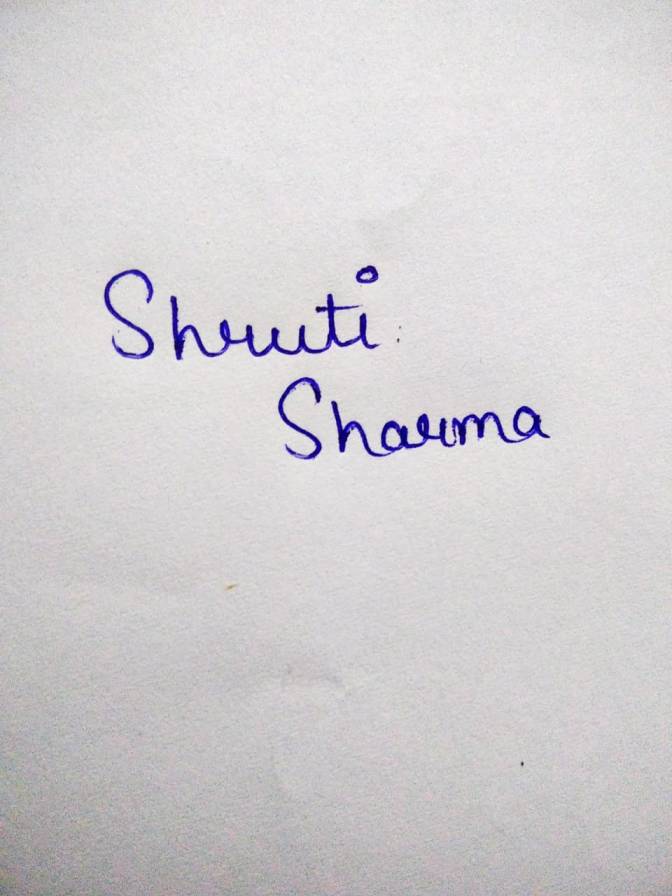 Shruti
Sharma